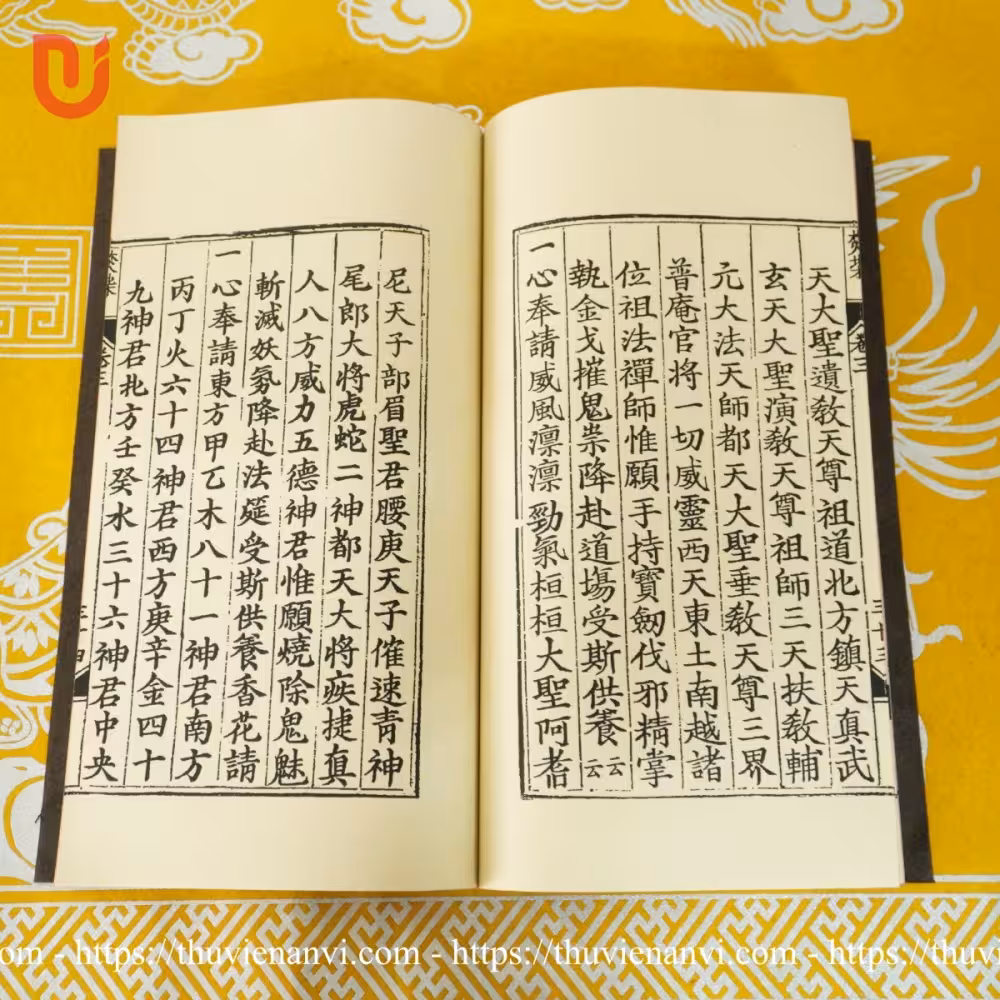 天大聖遺教天尊祖道北方鎮天真武
玄天大聖演教天尊祖師三天扶教輔
元大法天師都天大聖垂教天尊三界
普庵官將一切威靈西天東土南越諸
位祖法禪師惟願手持寶劒伐邪精掌
執金戈摧鬼祟降赴道場受斯供養云云
一心奉請威風凛凛勁氣桓桓大聖阿耆
尼天子部眉聖君腰庚天子催速青神
尾郎大將虎蛇二神都天大將疾捷真
人八方威力五德神君惟願燒除鬼魅
斬滅妖氛降赴法筵受斯供養香花請
一心奉請東方甲乙木八十一神君南方
丙丁火六十四神君西方庚辛金四十
九神君北方壬癸水三十六神君中央
卷三
https://thuvienanvi.com - https://thuvienanvi.com - https://thuvienanvi.com